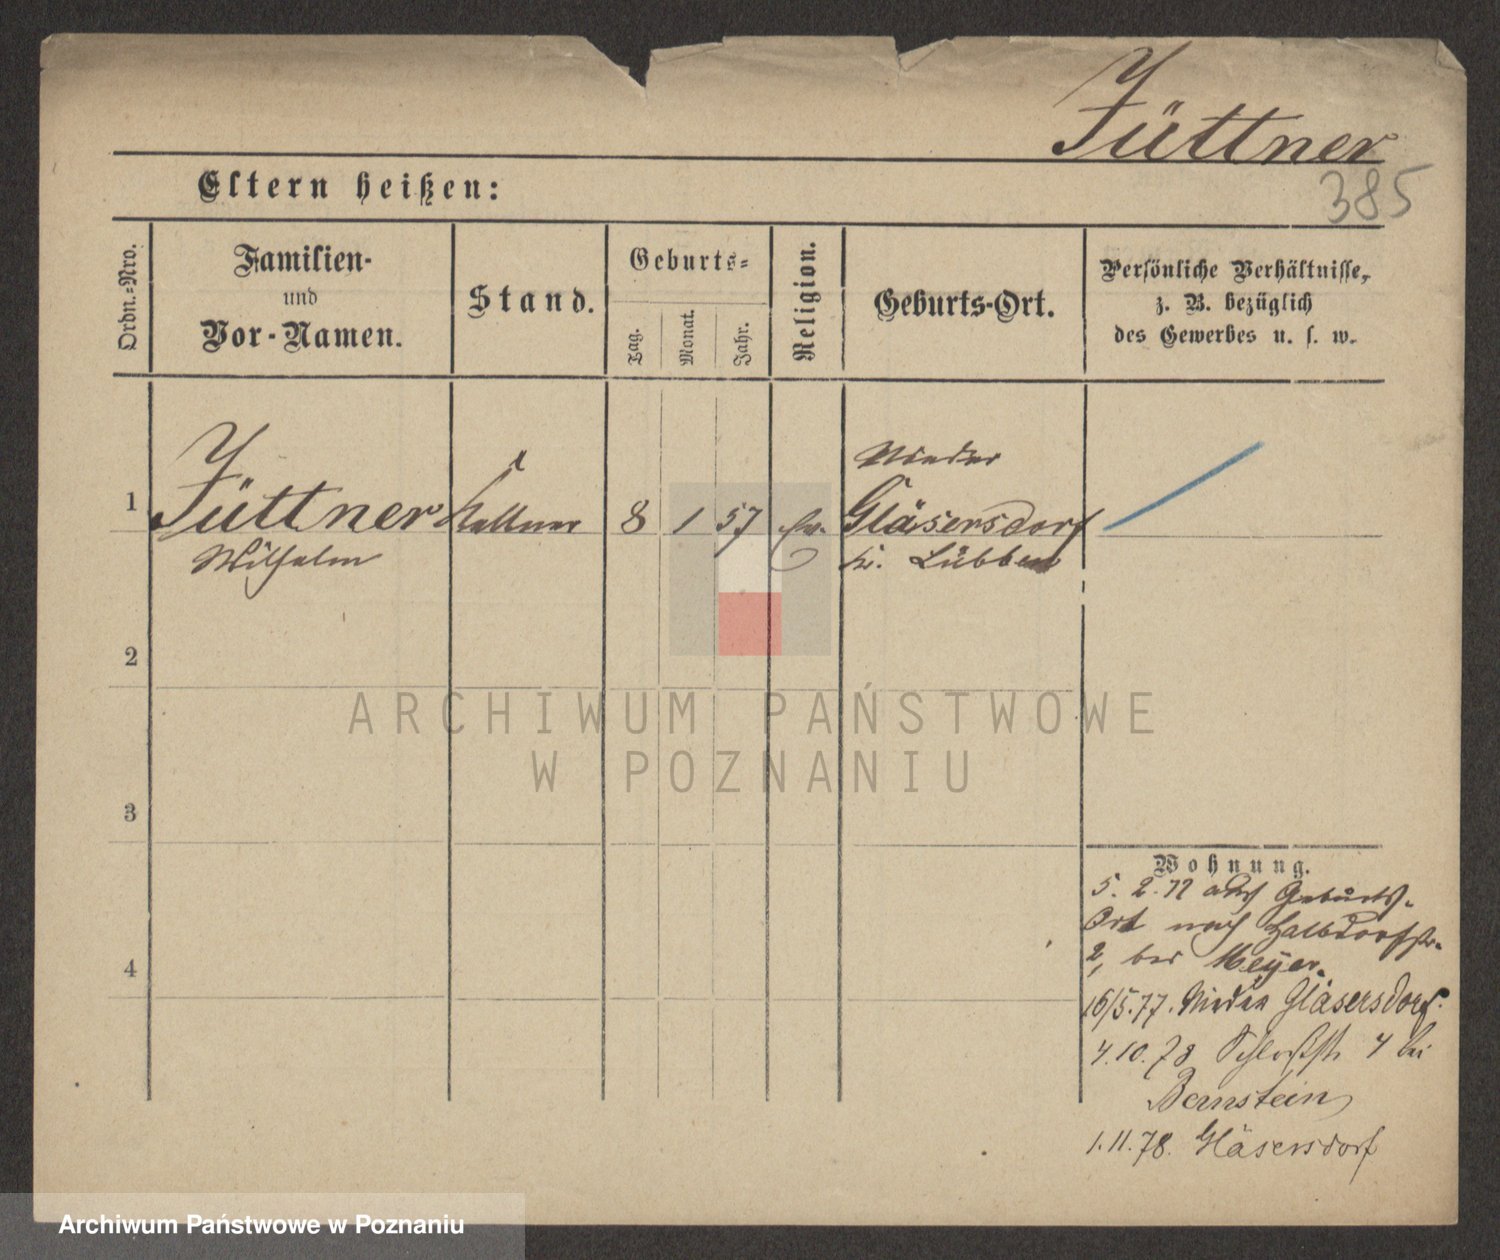 Jüttner
385
Eltern heißen:
Ordn.-Nro.
Familien-
und
Vor-Namen.
Stand.
Geburts-
Tag.
Monat.
Jahr.
Religion.
Geburts-Ort.
Persönliche Verhältnisse,
z. B. bezüglich
des Gewerbes u. s. w.
Nieder
1 Jüttner Kellner 8 1 57 ev. Gläsersdorf
Wilhelm Kr. Lübben
2
3
4
Wohnung.
5. 2. 77 aus Geburts-
Ort nach Halbdorfstr.
2, bei Meyer.
16/5.77. Nieder Gläsersdorf.
4.10.78 Schloßstr. 4 bei
Bernstein
1.11.78. Gläsersdorf
ARCHIWUM PAŃSTWOWE
W POZNANIU
Archiwum Państwowe w Poznaniu